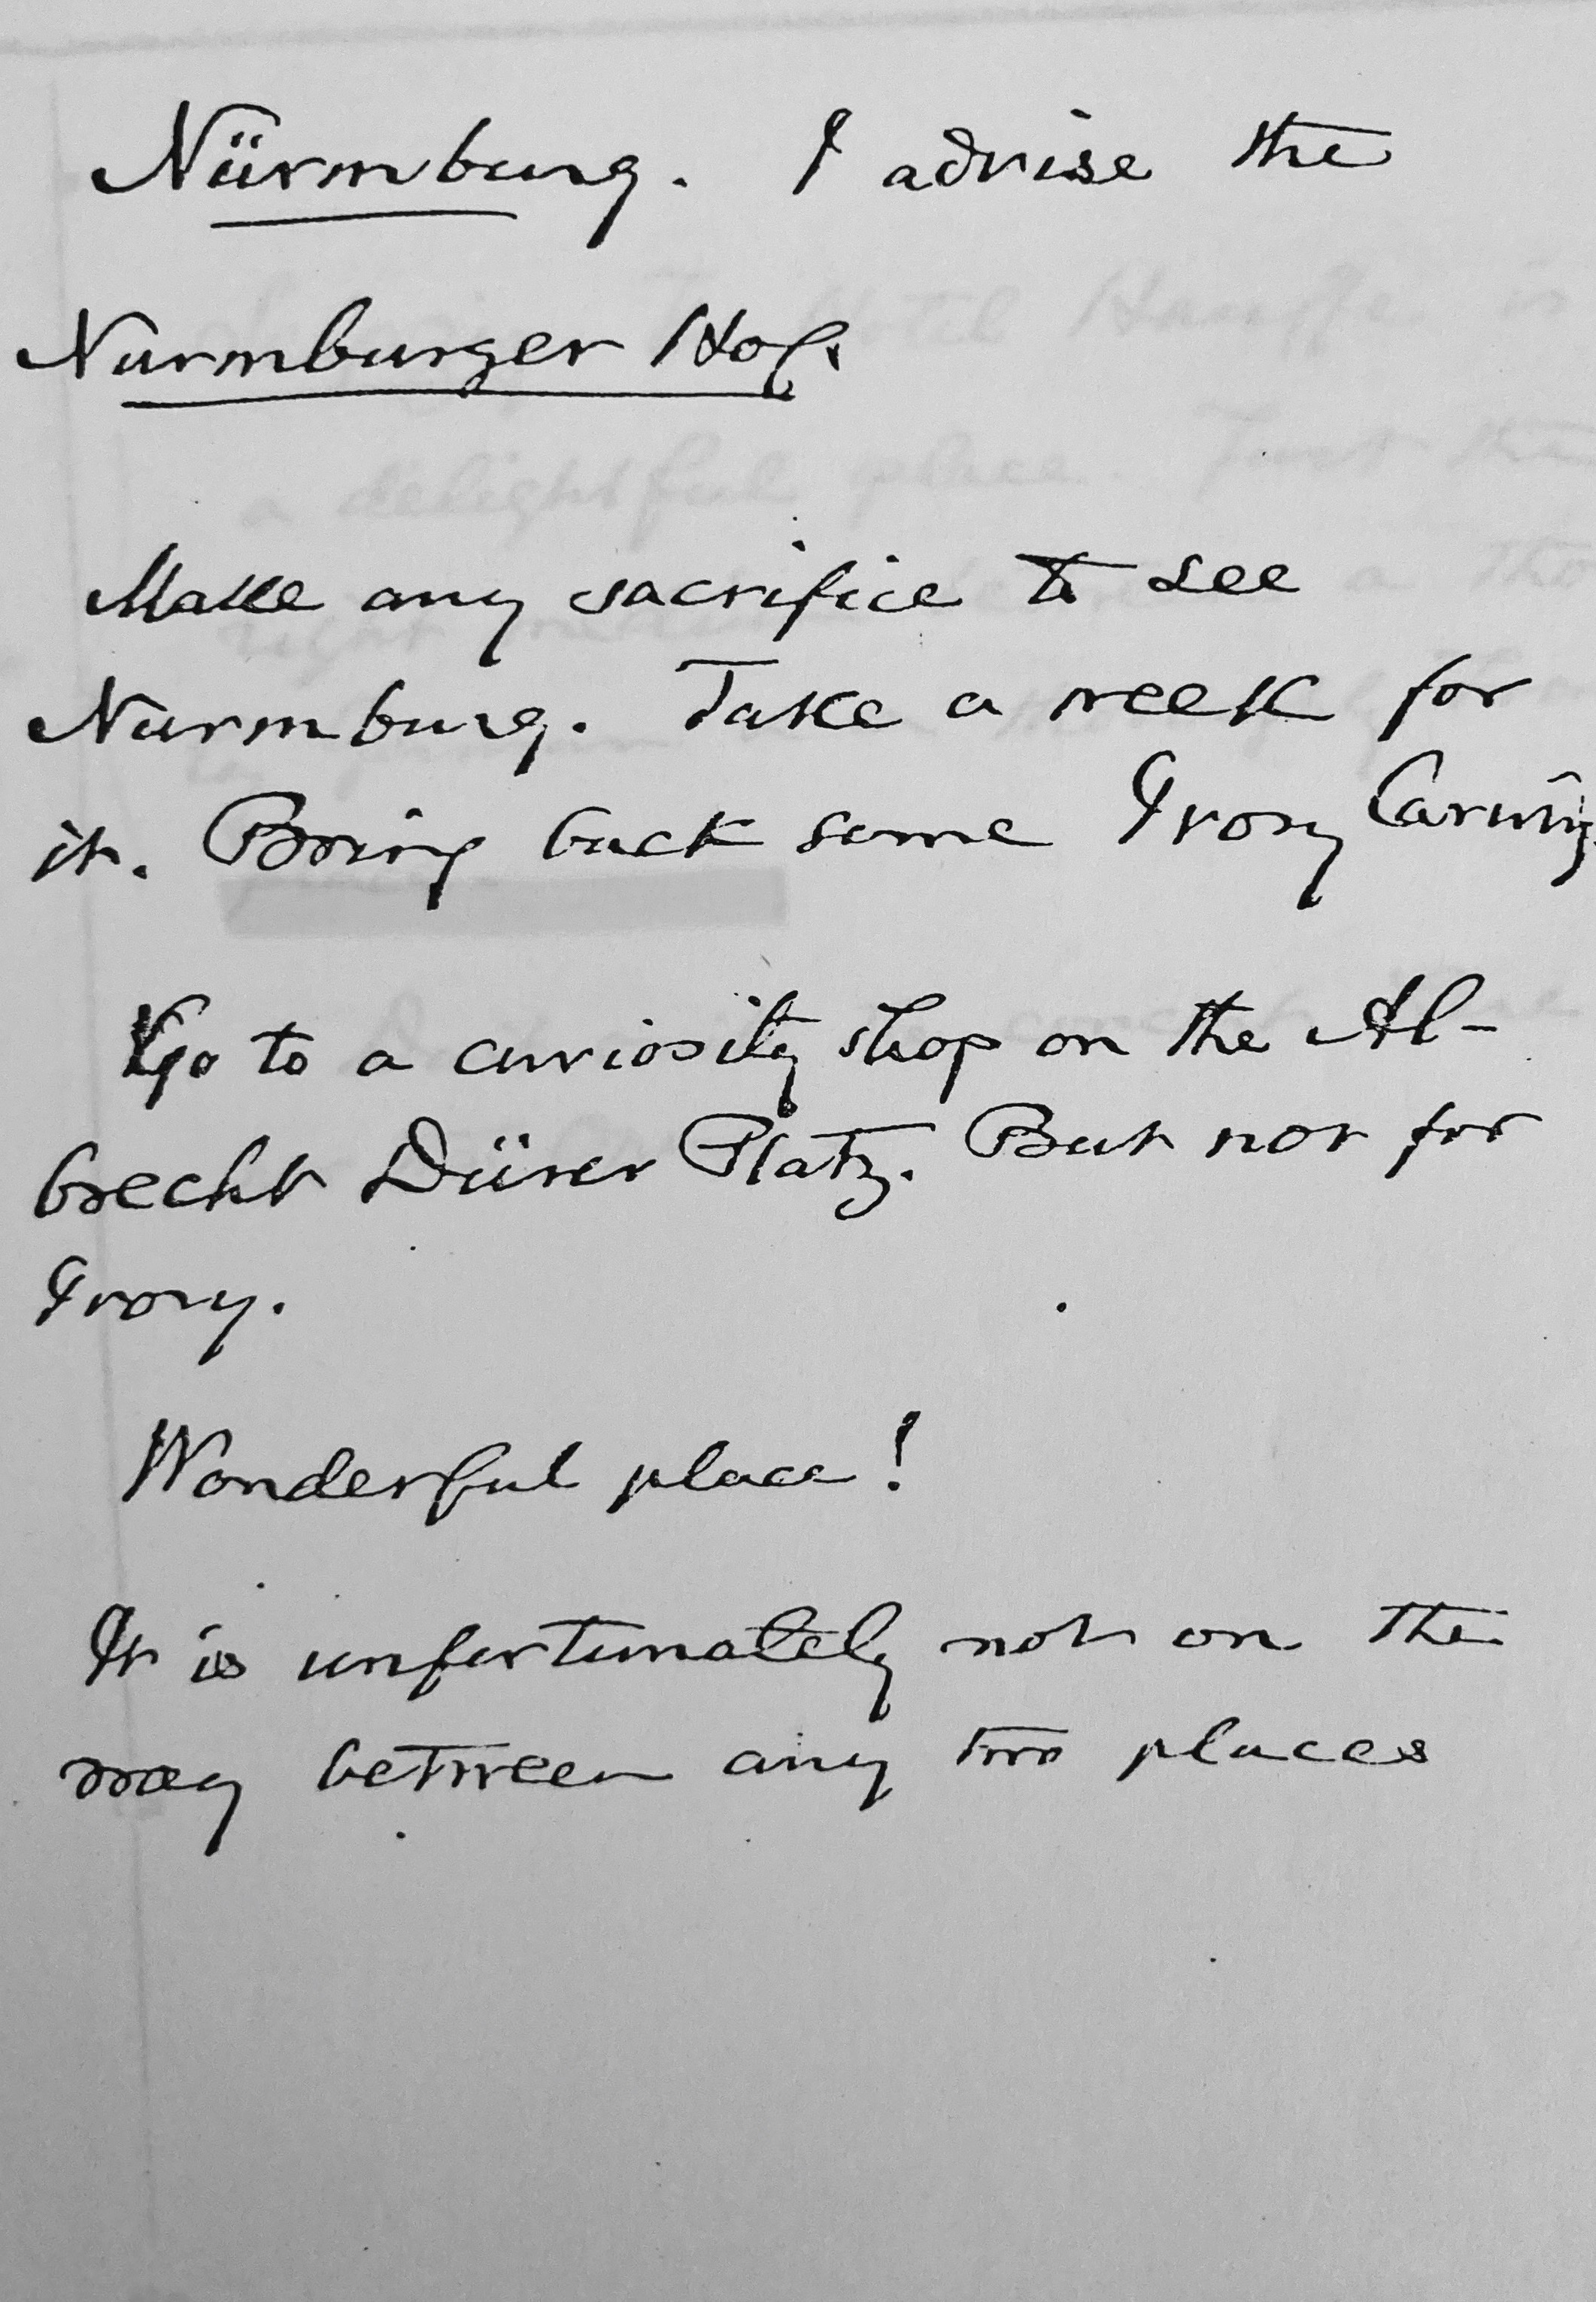 Nürmburg. I advise the
Nurmburger Hof.
Make any sacrifice to see
Nurmburg. Take a week for
it. Bring back some Ivory Carving.
Go to a curiosity shop on the Al-
brecht Dürer Platz. But not for
Ivory.
Wonderful place!
It is unfortunately not on the
way between any two places